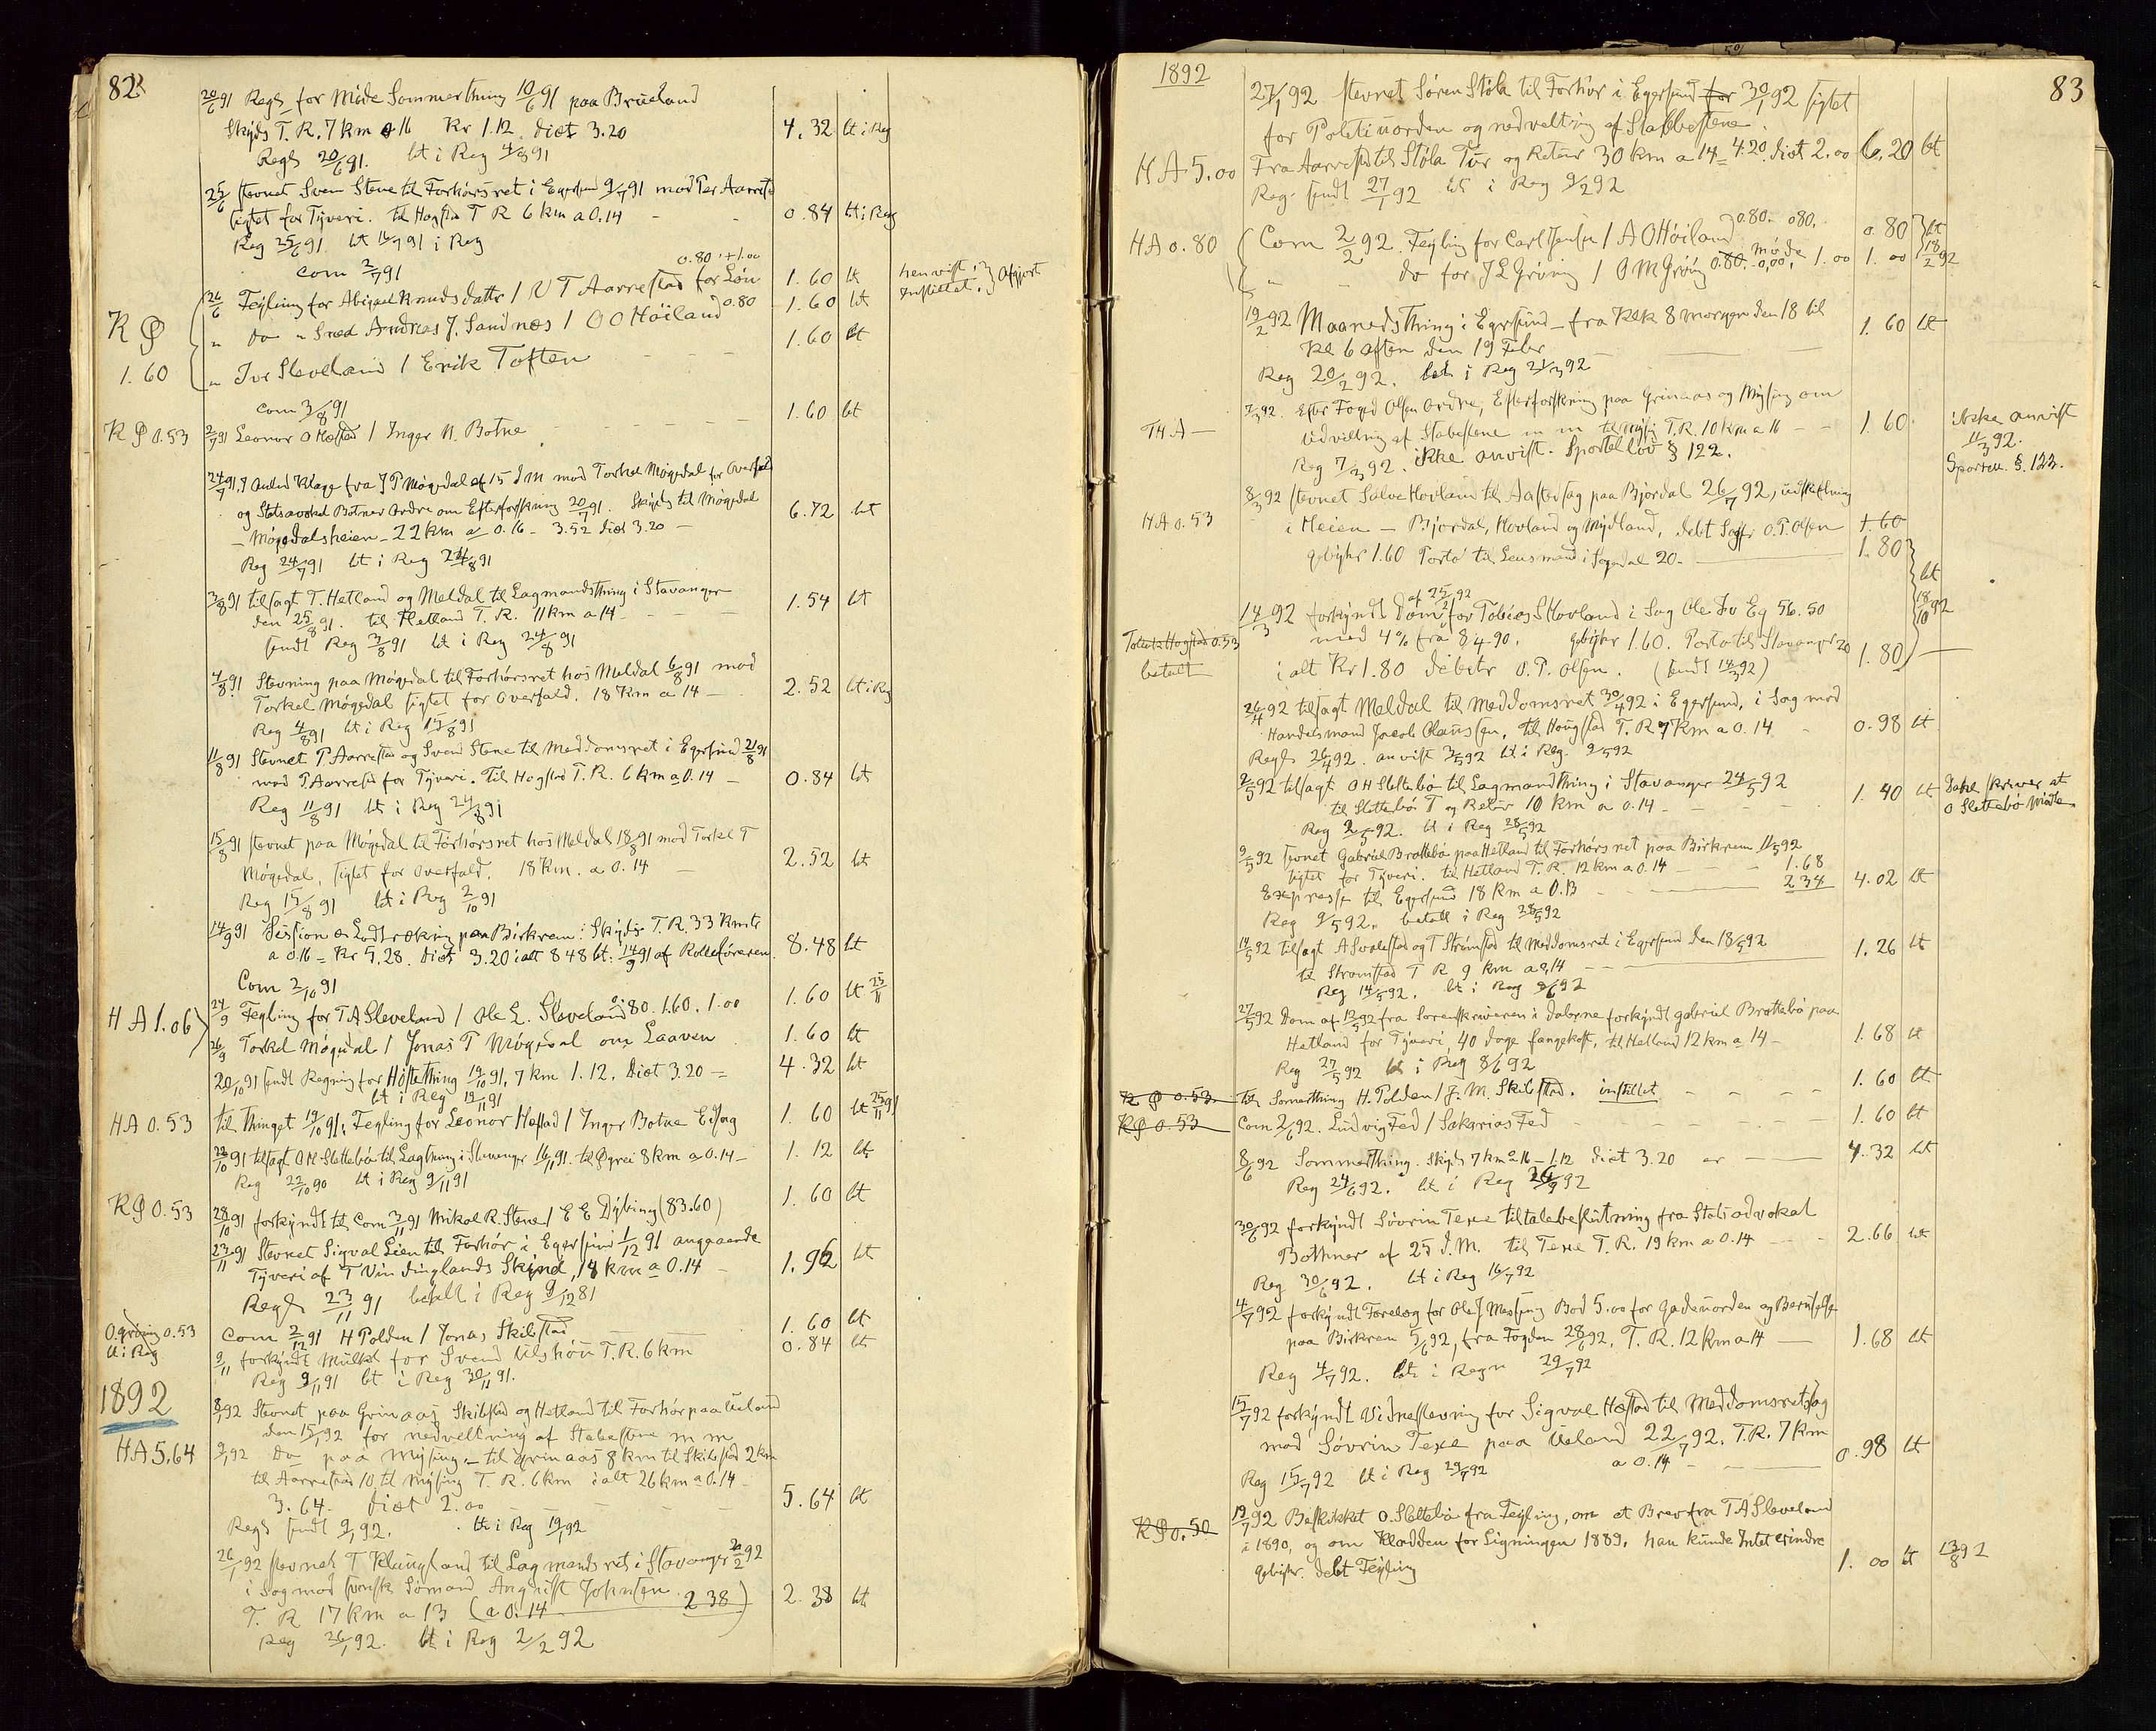 82
20/6 91 Regn for Møde Sommerthing 10/6 91 paa Brueland
Skyds T. R. 7 km a 16 Kr 1.12 Diæt 3.20 4.32 bt i Reg
Regn 20/6 91. bt i Reg 4/8 91
25/6 stevnet Sven Stene til Forhørsret i Egersund 9/7 91 mod Per Aarrestad
sigtet for Tyveri. til Hogstad T R 6 km a 0.14 - - 0.84 bt i Reg
Reg 25/6 91 bt 16/7 91 i Reg
Com 2/7 91 0.80 + 1.00
26/6 Fejling for Abigael Knudsdatter / U T Aarrestad for Løn 1.60 bt henvist
" Do " Sned Andreas J. Sandnes / O O Høiland 0.80 1.60 bt Indstillet Afgjort
K P 1.60
" Ivr Sleveland / Erik Toften - - - 1.60 bt
Com 3/8 91
K P 0.53 2/7 91 Leonor O Hæstad / Inger N. Botne - - - - 1.60 bt
24/7 91, Anled Klage fra J P Møgedal af 15 d M mod Torkel Møgedal for Overfald
og Statsadvokat Botner Ordre om Efterforskning 20/7 91. Skyds til Møgedal
- Møgedalsheien - 22 km a 0.16 - 3.52 Diæt 3.20 - 6.72 bt
Reg 24/7 91 bt i Reg 24/8 91
3/8 91 tilsagt T. Hetland og Meldal til Lagmandsthing i Stavanger
den 25/8 91. til Hetland T. R. 11 km a 14 - - - 1.54 bt
sendt Reg 3/8 91 bt i Reg 24/8 91
4/8 91 Stevning paa Møgedal til Forhørsret hos Meldal 6/8 91 mod
Torkel Møgedal sigtet for Overfald. 18 km a 14 - 2.52 bt i Reg
Reg 4/8 91 bt i Reg 15/8 91
11/8 91 Stevnet P. Aarrestad og Svend Stene til Meddomsret i Egersund 21/8 91
mod P. Aarrestad for Tyveri. Til Hogstad T. R. 6 km a 0.14 - 0.84 bt
Reg 11/8 91 bt i Reg 24/8 91
15/8 91 stevnet paa Møgedal til Forhørsret hos Meldal 18/8 91 mod Torkel T
Møgedal, sigtet for Overfald. 18 km. a 0.14 - 2.52 bt
Reg 15/8 91 bt i Reg 2/10 91
14/9 91 Session og Lodtrækning paa Birkrem: Skyds T. R. 33 Kmtr
a 0.16 = Kr 5.28. Diæt 3.20 ialt 8 48 bt. 14/9 91 af Rulleføreren. 8.48 bt
Com 2/10 91
H A 1.06 24/9 Fejling for T A Sleveland / Ole L. Sleveland 0.80. 1.60. 1.00 1.60 bt 25/11
26/9 Torkel Møgedal / Jonas T Møgedal om Laaven 1.60 bt
20/10 91 sendt Regning for Høstething 19/10 91. 7 km 1.12. Diæt 3.20 = 4.32 bt
bt i Reg 19/11 91
HA 0.53 til Thinget 19/10 91: Fejling for Leonor Hæstad / Inger Botne Eisag 1.60 bt 25/11 91
22/10 91 tilsagt O H Slettebø til Lagthing i Stavanger 16/11 91. til Øgrei 8 km a 0.14 - 1.12 bt
Reg 22/10 90 bt i Reg 9/11 91
K P 0.53 28/10 91 forkyndt til Com 3/11 91 Mikal R. Stene / E E Dybing (83.60) 1.60 bt
23/11 91 Stevnet Sigval Lien til Forhør i Egersund 1/12 91 angaaende
Tyveri af T Vindinglands Skind, 14 km a 0.14 - 1.96 bt
Regn 23/11 91 betalt i Reg 9/12 81
O. grøning 0.53 Com 2/12 91 H Polden / Jonas Skibstad 1.60 bt
bt i Reg 9/11 forkyndt Mulkt for Svend Ulshøu T. R. 6 km 0.84 bt
Reg 9/11 91 bt i Reg 30/11 91.
1892
8/1 92 Stevnet paa Grinaas Skibstad og Hetland til Forhør paa Ueland
den 15/1 92 for nedveltning af Stabestene m m
HA 5.64 9/1 92 Do paa Mysing. - til Grinaas 8 km til Skibstad 2 km
til Aarrestad 10 til Mysing T. R. 6 km ialt 26 km a 0.14 -
3.64. Diæt 2.00 - - - - - 5.64 bt
Regn sendt 9/1 92. bt i Reg 19/1 92
26/1 92 stevnet T Klungland til Lagmandsret i Stavanger 2/2 92
i Sag mod svensk Sømand August Johnsen
T. R 17 km a 13 (a 0.14 2 38) 2.38 bt
Reg 26/1 92. bt i Reg 2/2 92
1892 83
27/1 92 stevnet Søren Støla til Forhør i Egersund for 30/1 92 sigtet
for Politiuorden og nedveltning af Stabbestene.
H A 5.00 Fra Aarrestad til Støla Tur og Retur 30 km a 14 = 4.20. Diæt 2.00 6.20 bt
Reg. sendt 27/1 92 bt i Reg 9/2 92
HA 0.80 Com 2/2 92. Fejling for Carl Jensen / A O Høiland 0.80. 080. 0.80 bt
" Do for J L Grøning / O M Grøning 0.80. 0,00. møde 1.00 1.00 18/2 92
19/2 92 Maanedsthing i Egersund - fra Klk 8 morgen den 18 til
Kl 6 aften den 19 Febr - 1.60 bt
Reg 20/2 92. bet i Reg 21/3 92
7/3 92. Efter Foged Olsen Ordre, Efterforskning paa Grinaas og Mysing om
TH A - Udveltning af Stabestene m m til Mysing T.R. 10 km a 16 - - 1.60. ikke anvist
Reg 7/3 92. ikke anvist. Sportellov § 122. 11/3 92.
Sportell. §. 122.
8/3 92 stevnet Salve Hovland til Aastedsag paa Bjordal 26/7 92, udskiftning
HA 0.53 i Heien - Bjordal, Hovland og Mydland, debt Sagfr O. P. Olsen 1.60
gebyhr 1.60 Porto til Lensmand i Sogndal 20. - 1.80
af 25/2 92
14/3 92 forkyndt Dom for Tobias S Hovland i Sag Ole Iv Eg 56.50 bt 18/10 92
Tollak Hogstad 0.53 med 4% fra 8/4 90. gebyhr 1.60. Porto til Stavanger 20
betalt i alt Kr 1.80 debetr O. P. Olsen. (sendt 14/3 92) 1.80
26/4 92 tilsagt Meldal til Meddomsret 30/4 92 i Egersund, i Sag mod
Handelsmand Jacob Olaussen, til Hougstad T. R. 7 km a 0.14 - 0.98 bt
Regn 26/4 92. anvist 3/5 92 bt i Reg. 9/5 92
2/5 92 tilsagt O H Slettebø til Lagmandthing i Stavanger 24/5 92
til Slettebø T og Retur 10 km a 0.14 - - - 1.40 bt Dahl skriver at
Reg 2/5 92. bt i Reg 28/5 92 O Slettebø mødte
9/5 92 stevnet Gabriel Brattebø paa Hetland til Forhørsret paa Birkrem 11/5 92
sigtet for Tyveri. til Hetland T. R. 12 km a 0.14 - - - 1.68
Expresse til Egersund 18 km a 0.13 - - 234 4.02 bt
Reg 9/5 92. betalt i Reg 28/5 92
14/5 92 tilsagt A Svalestad og T Strømstad til Meddomsret i Egersund den 18/5 92
til Strømstad T R 9 km a 0,14 - - 1.26 bt
Reg 14/5 92. bt i Reg 8/6 92
27/5 92 Dom af 13/5 92 fra Sorenskriveren i Dalerne forkyndt Gabriel Brattebø paa
Hetland for Tyveri 40 dage fangekost, til Hetland 12 km a 14 - 1.68 bt
Reg 27/5 92 bt i Reg 8/6 92
K P 0.53 til Somerthing H. Polden / J. M. Skibstad. instillet - - - 1.60 bt
K P 0.53 Com 2/6 92. Ludvig Fed / Sakarias Fed - - - 1.60 bt
8/6 92 Sommerthing. Skyds 7 km a 16 - 1.12 Diæt 3.20 er - 4.32 bt
Reg 24/6 92. bt i Reg 26/7 92
30/6 92 forkyndt Søvrin Texe tiltalebeslutning fra Statsadvokat
Bothner af 25 d. M. til Texe T. R. 19 km a 0.14 - - 2.66 bt
Reg 30/6 92. bt i Reg 16/7 92
4/7 92 forkyndt Forelæg for Ole J Messing Bod 5.00 for Gadeuorden og Beruselse
paa Birkrem 5/6 92, fra Fogden 28/6 92. T. R. 12 km a 14 - 1.68 bt
Reg 4/7 92. bt i Regn 29/7 92
15/7 92 forkyndt Vidnestevning for Sigval Hæstad til Meddomsretssag
mod Søvrin Texe paa Ueland 22/7 92. T. R. 7 km
a 0.14 - - 0.98 bt
Reg 15/7 92 bt i Reg 29/7 92
K P 0.50 19/7 92. Beskikket O. Slettebø fra Fejling, om et Brev fra T A Sleveland
i 1890, og om Kladden for Ligningen 1889. han kunde Intet erindre
gebyhr. debt Fejling 1.00 bt 13/8 92